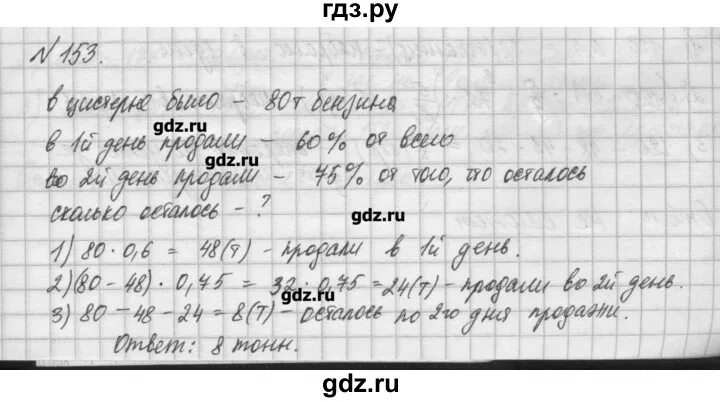 гдз.ру
№ 153.
в цистерне было – 80т бензина
gdz.ru
в 1й день продали – 60% от всего
gdz.ru
во 2й день продали – 75% от того, что осталось
gdz.ru
сколько осталось – ?
1) 80 · 0,6 = 48(т) – продали в 1й день.
2)(80 – 48) · 0,75 = 32 · 0,75 = 24(т) – продали во 2й день.
gdz.ru
3) 80 – 48 – 24 = 8(т) – осталось по 2го дня продажи.
Ответ: 8 тонн.
gdz.ru
gdz.ru